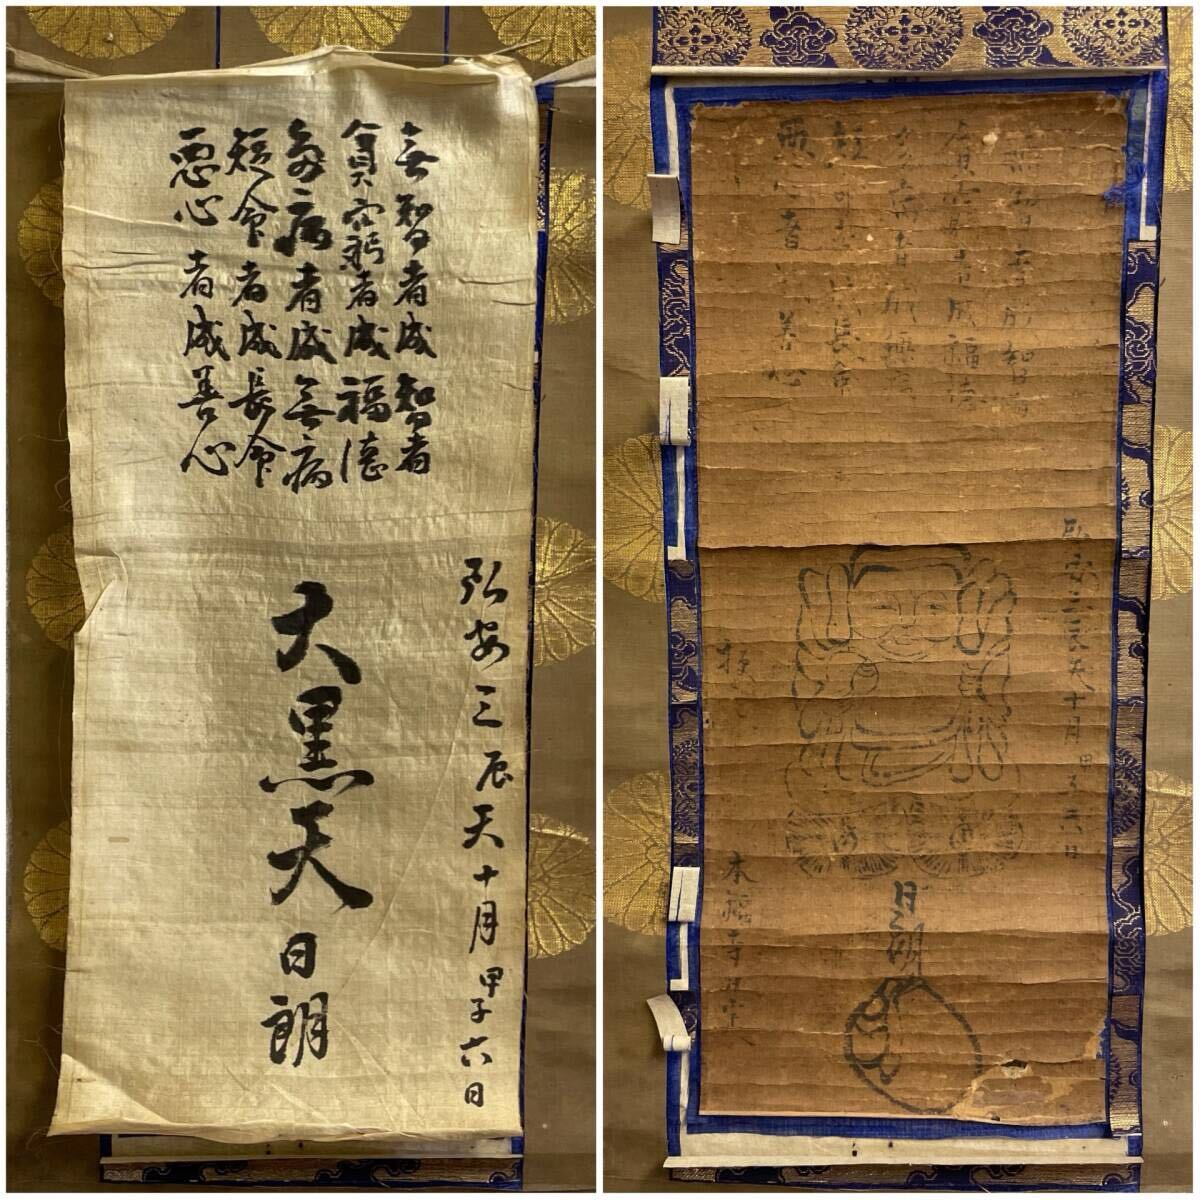 無智者成智者
貧窮者成福徳
多病者成無病
短命者成長命
悪心者成善心
弘安三辰天十月甲子六日
大黒天
日朗
無智者成智者
貧窮者成福徳
病者成
長命
善心
弘安三辰天十月甲子六日
授
日朗
本福寺